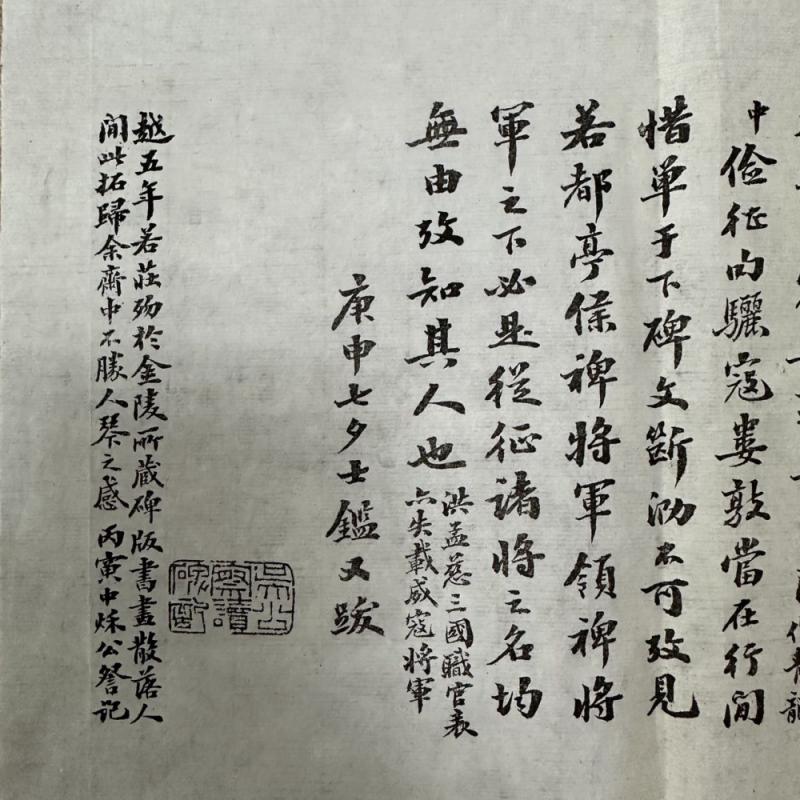 中儉征句驪寇婁敦當在行間
惜單于下碑文斷泐不可攷見
若都亭侯裨將軍領裨將
軍之下必是從征諸將之名均
無由攷知其人也
洪孟慈三國職官表
亦失載威寇將軍
庚申七夕士鑑又跋
越五年若莊歿於金陵所藏碑版書畫散落人
間此拓歸余齋中不勝人琴之感 丙寅中秌公詧記
吳公
詧讀